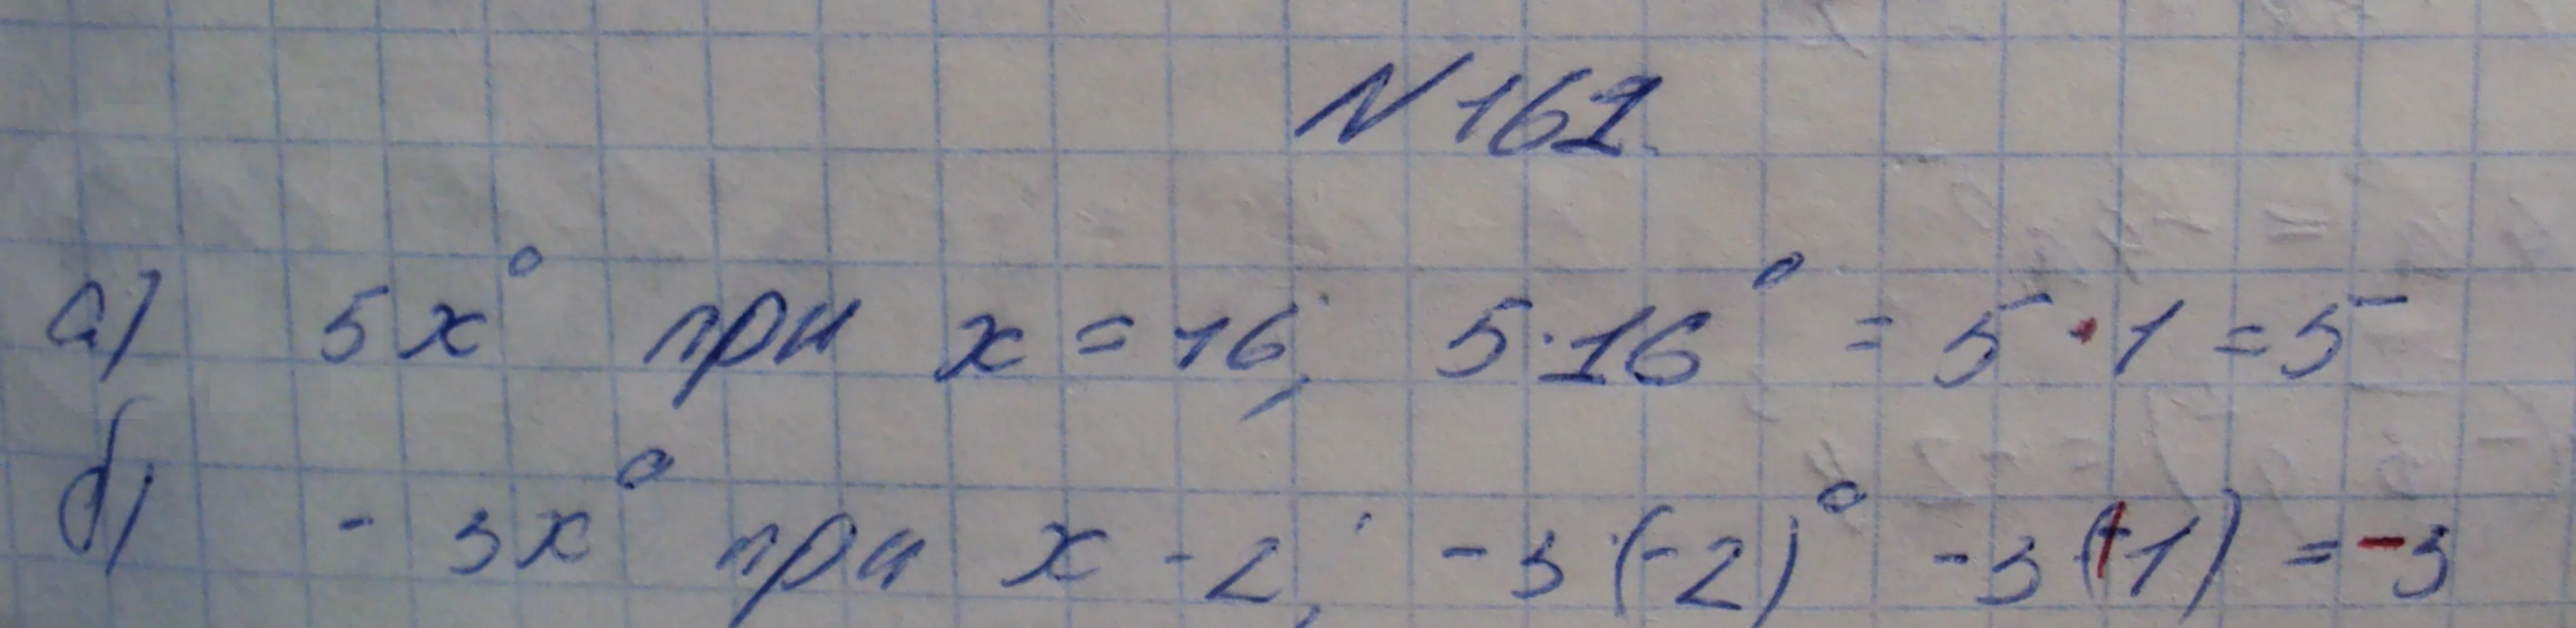 N 162.
а) 5x⁰ при x = 16; 5·16⁰ = 5·1 = 5
б) - 3x⁰ при x - 2; - 3·(-2)⁰ - 3(+1) = -3